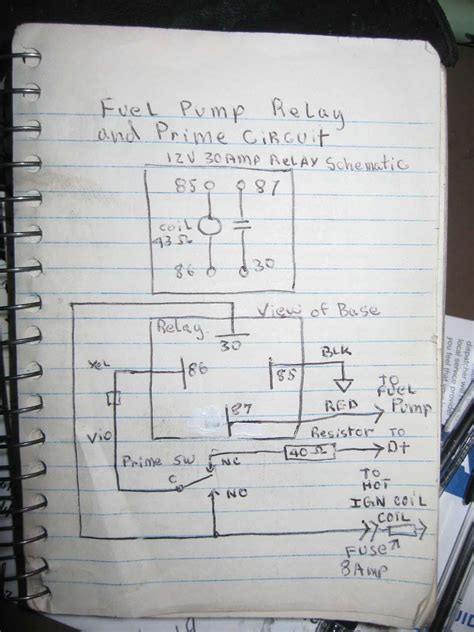 Fuel Pump Relay
and Prime Circuit
12V 30AMP Relay Schematic
85 87
coil
43Ω
86 30
View of Base
Relay
30
BLK
Yel
86
85
TO
FUEL
Pump
87
RED
Vio
Resistor
TO
D+
Prime SW
NC
40Ω
C
NO
TO
HOT
IGN COIL
COIL
FUSE
8Amp
dispatcher wi
local service
you feel that